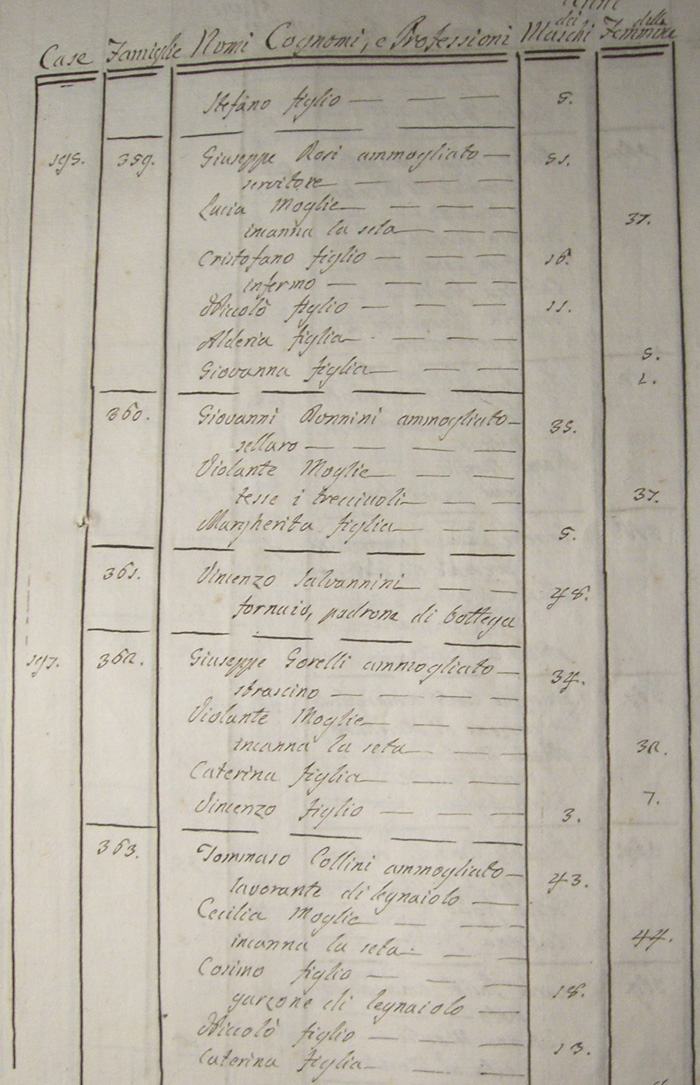 Anni
Case Famiglie Nomi Cognomi, e Professioni dei Maschi delle Femmine
Stefano figlio 5.
195. 359. Giuseppe Rosi ammogliato 51.
servitore
Lucia Moglie
incanna la seta 37.
Cristofano figlio 16.
infermo
Niccolò figlio 11.
Alderia figlia 5.
Giovanna figlia 2.
360. Giovanni Ronnini ammogliato 35.
sellaro
Violante Moglie
tesse i trecciuoli 37.
Margherita figlia 5.
361. Vincenzo Salvannini 48.
fornaio, padrone di bottega
197. 362. Giuseppe Gorelli ammogliato 34.
strascino
Violante Moglie
incanna la seta 32.
Caterina figlia 7.
Vincenzo figlio 3.
363. Tommaso Collini ammogliato 43.
lavorante di legnaiolo
Cecilia Moglie
incanna la seta 44.
Cosimo figlio 18.
garzone di legnaiolo
Niccolò figlio 13.
Caterina figlia